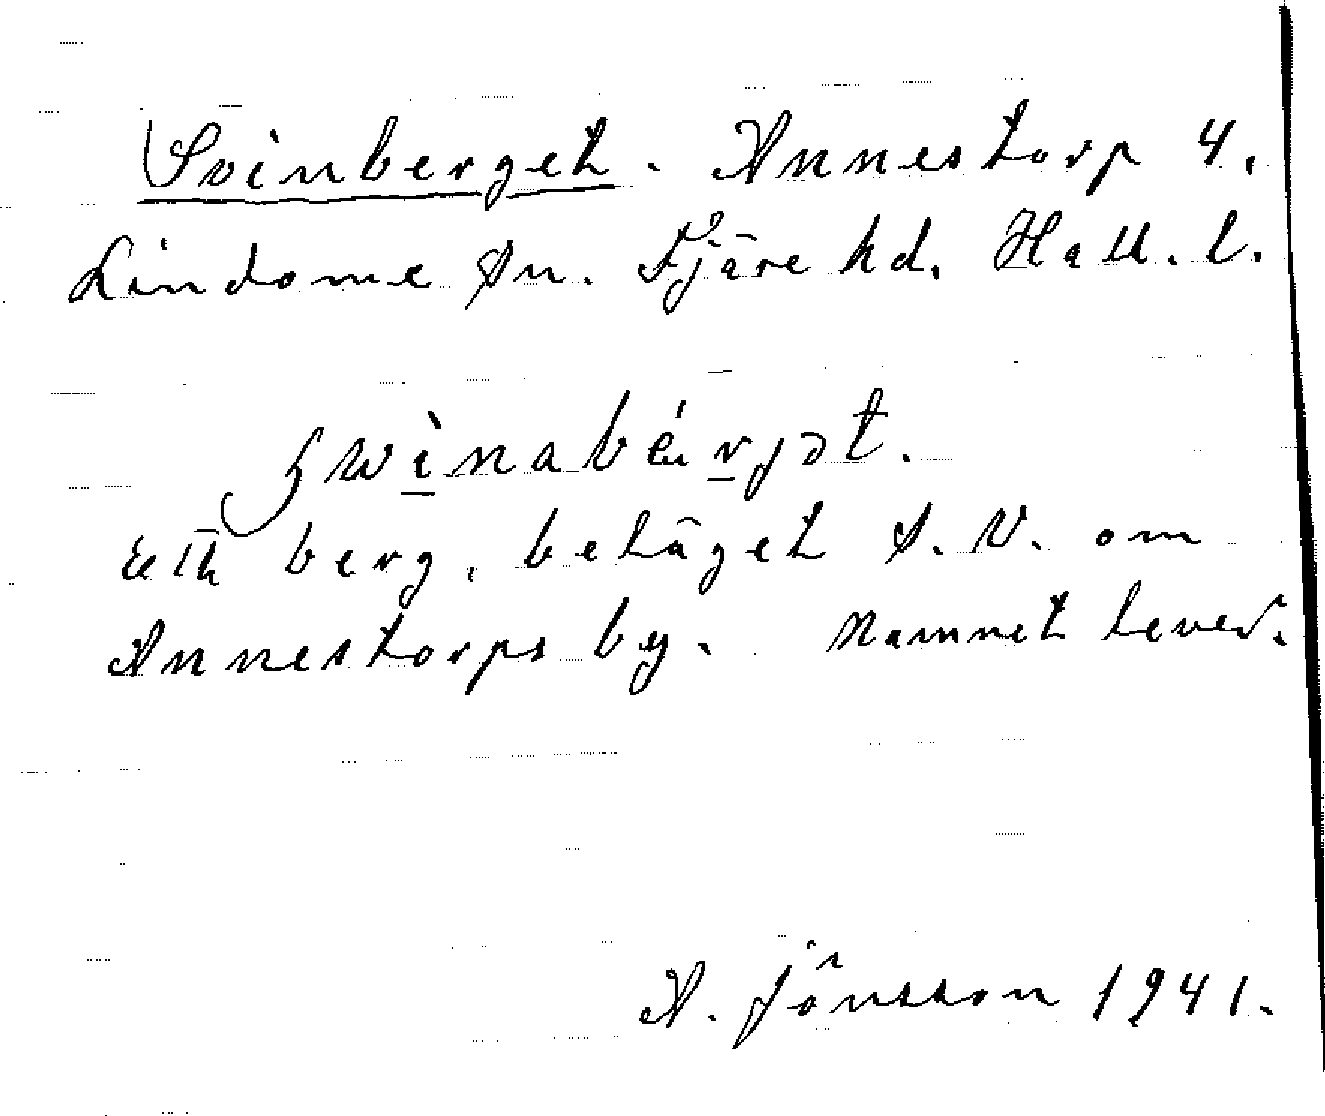 Svinberget. Annestorp 4.
Lindome sn. Fjäre hd. Hall. l.
Ett berg, beläget S.V. om
Annestorps by. Namnet lever.
A. Jönsson 1941.